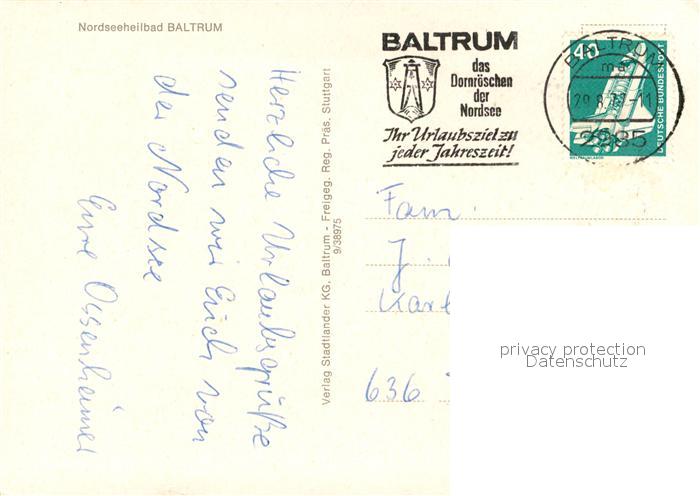 Nordseeheilbad BALTRUM
BALTRUM
das
Dornröschen
der
Nordsee
Ihr Urlaubsziel zu
jeder Jahreszeit!
BALTRUM
2985
40
DEUTSCHE BUNDESPOST
WELTRAUMLABOR
Herzliche Urlaubsgrüße
senden wir Euch von
der Nordsee
Eure Ossenheimer
Verlag Stadtlander KG. Baltrum - Freigeg. Reg. Präs. Stuttgart
9/38975
Fam.
J.
Karl
636
privacy protection
Datenschutz